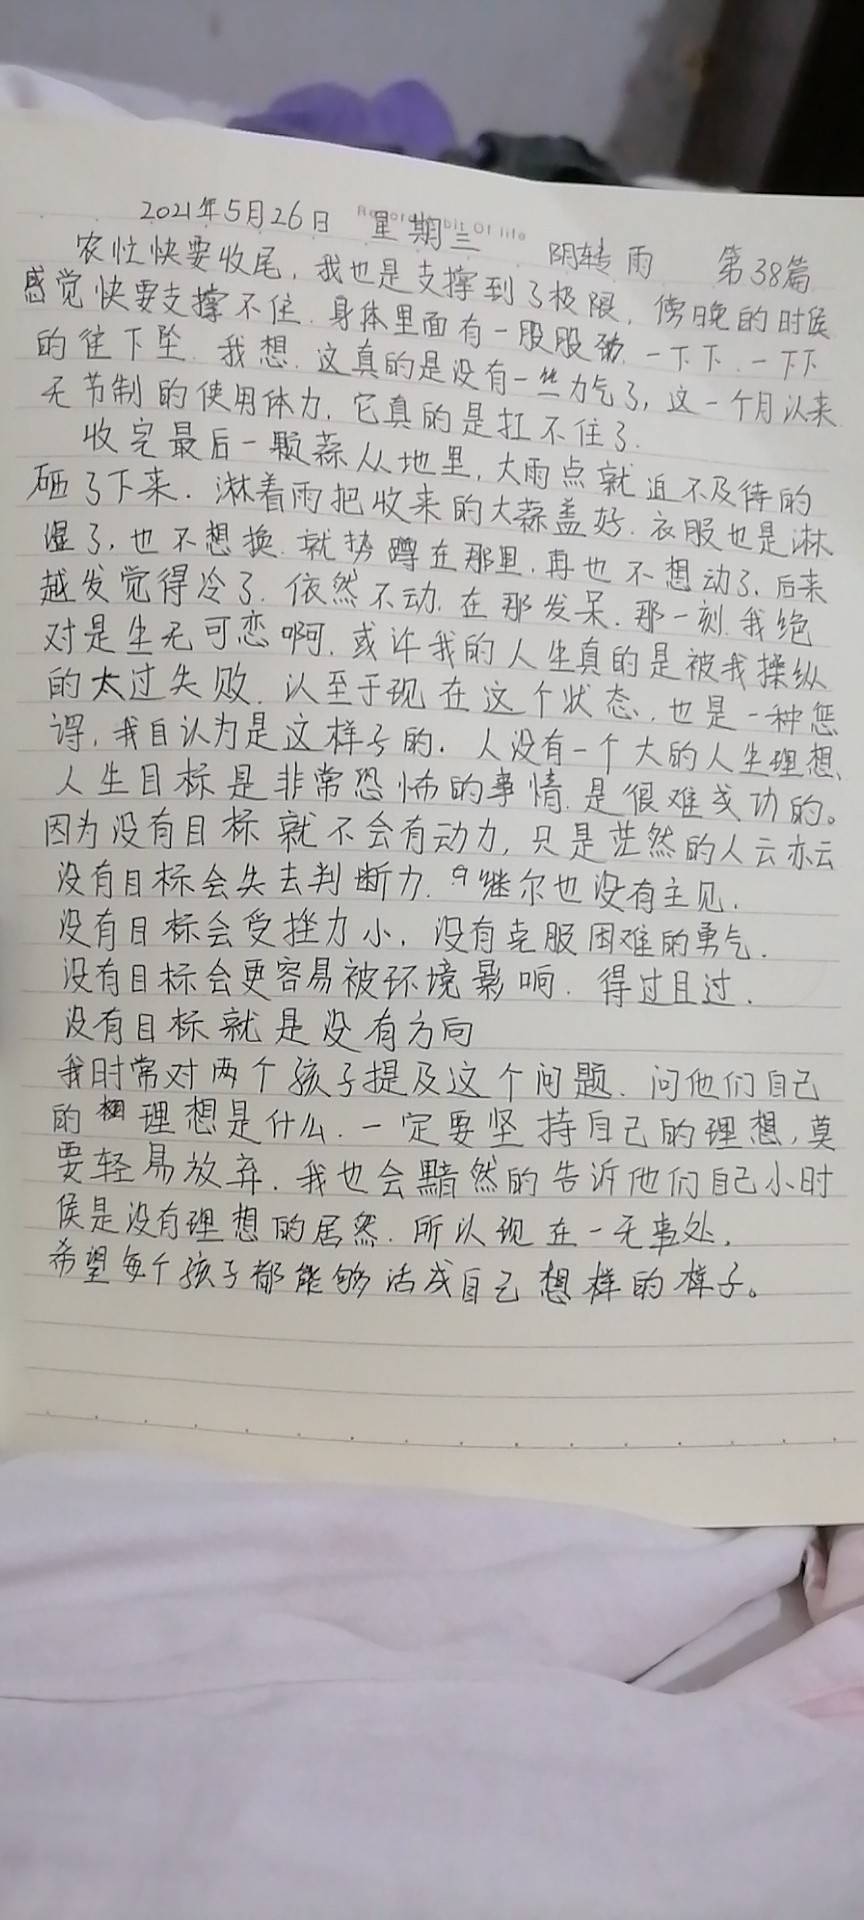 2021年5月26日 星期三 阴转雨 第38篇
of life
农忙快要收尾，我也是支撑到了极限，傍晚的时候
感觉快要支撑不住．身体里面有一股股劲．一下下．一下下
的往下坠．我想．这真的是没有一丝力气了，这一个月以来
无节制的使用体力．它真的是扛不住了．
收完最后一颗蒜从地里，大雨点就迫不及待的
砸了下来．淋着雨把收来的大蒜盖好．衣服也是淋
湿了，也不想换．就势蹲在那里．再也不想动了．后来
越发觉得冷了．依然不动．在那发呆．那一刻．我绝
对是生无可恋啊．或许我的人生真的是被我操纵
的太过失败．以至于现在这个状态．也是一种惩
谔，我自认为是这样子的．人没有一个大的人生理想、
人生目标是非常恐怖的事情．是很难成功的。
因为没有目标就不会有动力，只是茫然的人云亦云
没有目标会失去判断力．继尔也没有主见．
没有目标会受挫力小，没有克服困难的勇气．
没有目标会更容易被环境影响．得过且过．
没有目标就是没有方向
我时常对两个孩子提及这个问题．问他们自己
的理想是什么．一定要坚持自己的理想，莫
要轻易放弃．我也会黯然的告诉他们自己小时
侯是没有理想的居然．所以现在一无事处．
希望每个孩子都能够活成自己想样的样子。